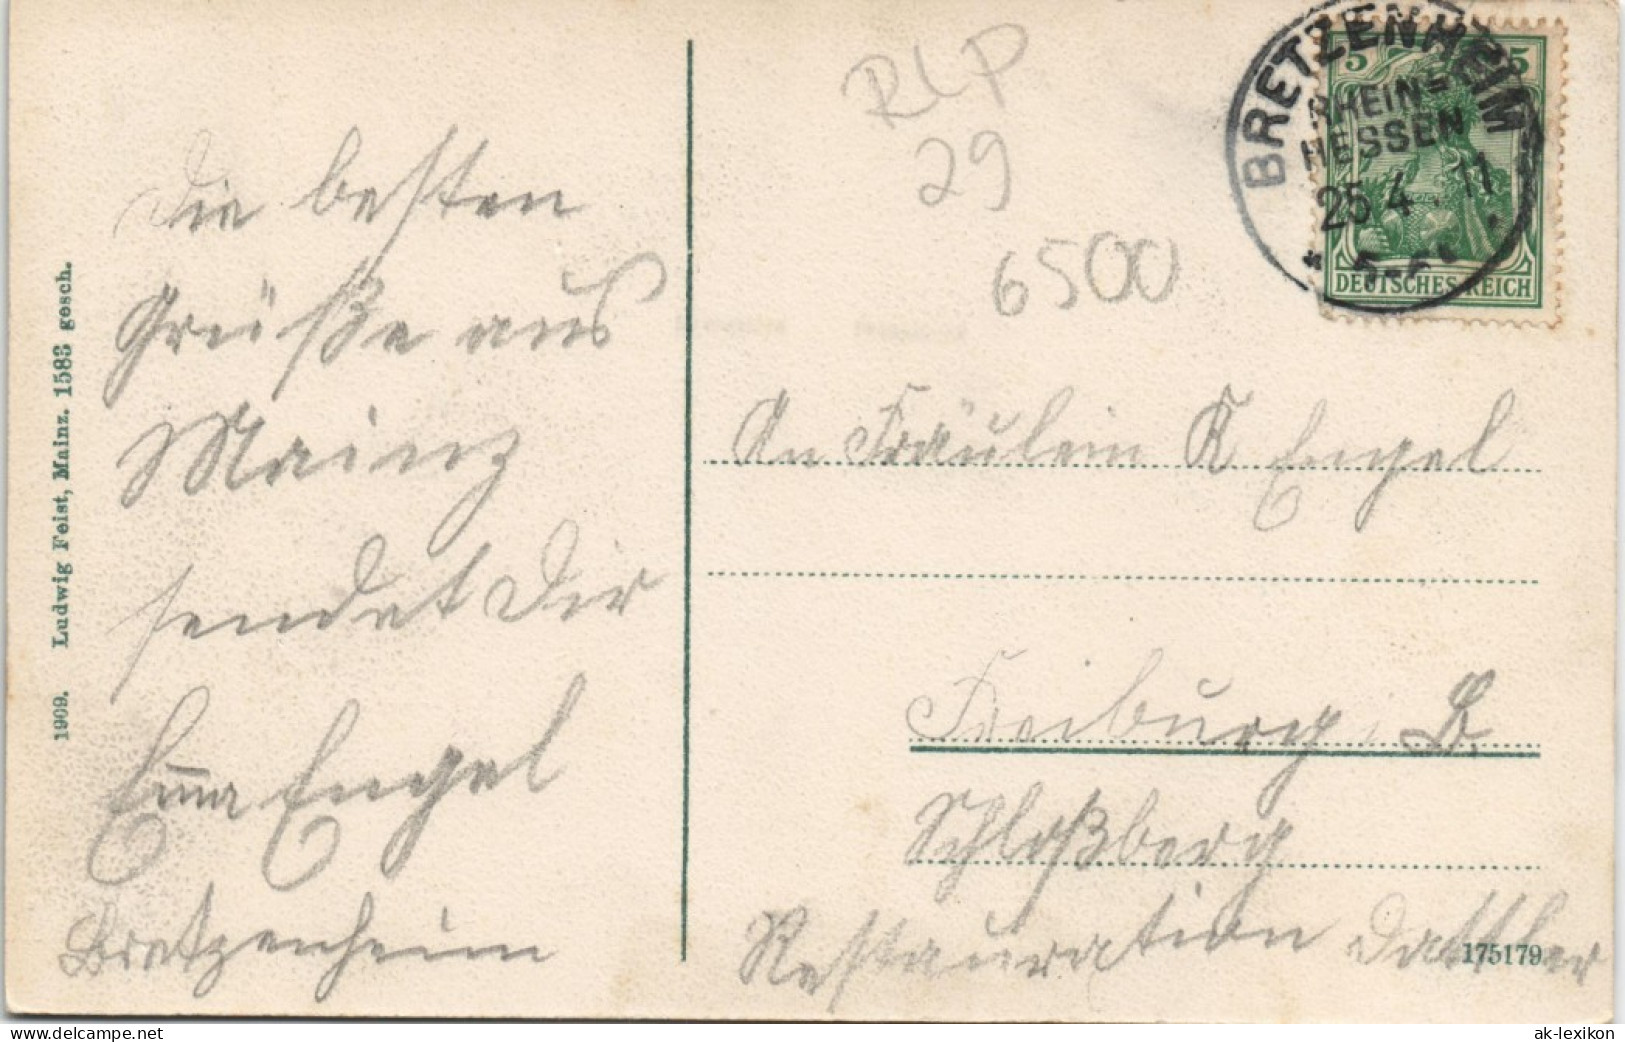 Die besten
Grüße aus
Mainz
sendet Dir
Emma Engel
Bretzenheim
1909. Ludwig Feist, Mainz. 1583 gesch.
RLP
29
6500
BRETZENHEIM
RHEIN=
HESSEN
25.4.11
5 5
DEUTSCHES REICH
An Fräulein K Engel
Freiburg, B.
Schloßberg
Restauration Dattler
175179
www.delcampe.net
ak-lexikon